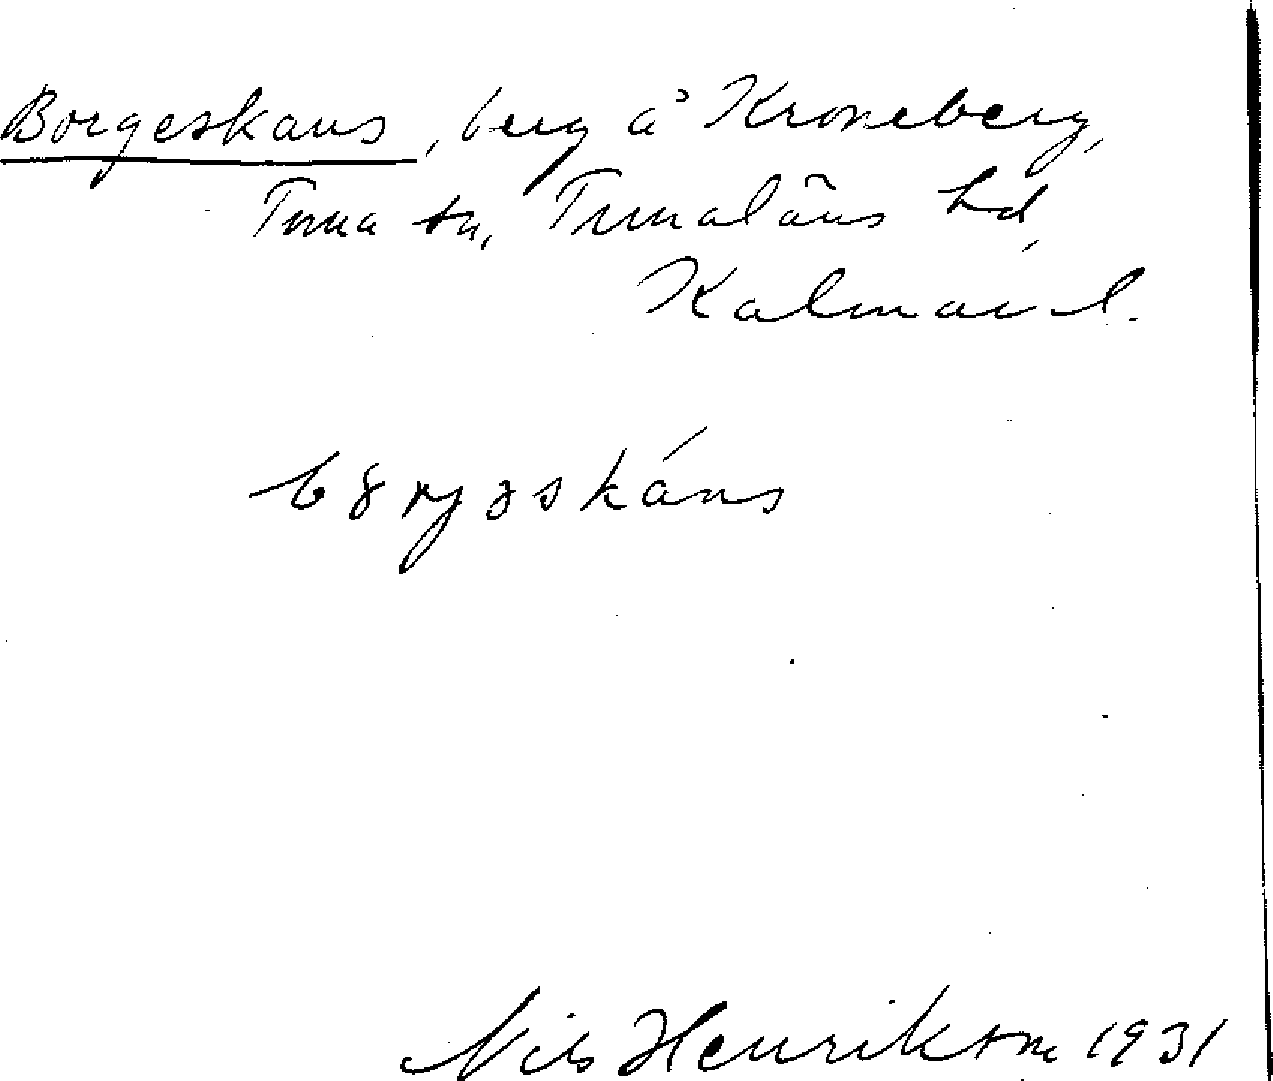 Borgeskans, berg å Kroneberg,
Tuna sn, Tunaläns hd,
Kalmar l.
bȣrjəskáns
Nils Henrikson 1931